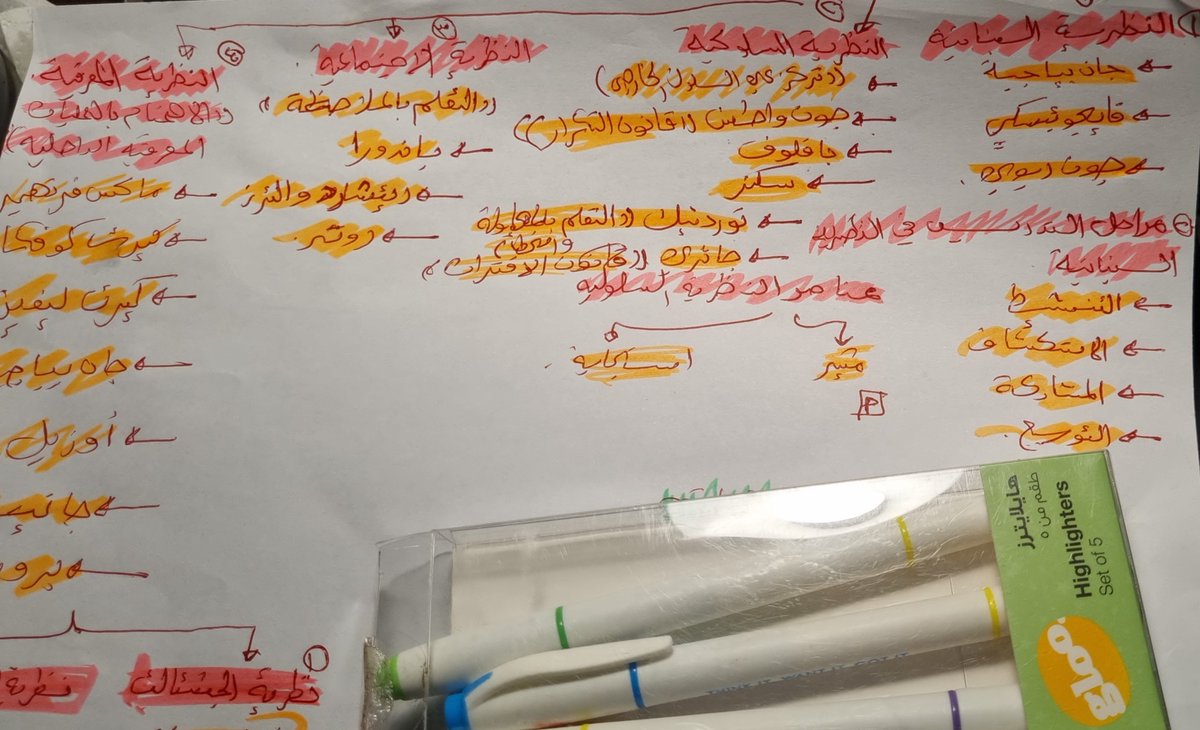 ① النظرية البنائية
جان بياجية
فايجوتسكي
جون ديوي
مراحل التدريس في النظرية
البنائية
التنشيط
الاستكشاف
المشاركة
التوسيع
النظرية السلوكية
(تركز على السلوك الخارجي)
جون واطسن (قانون التكرار)
بافلوف
سكنر
ثورنديك (التعلم بالمحاولة
والخطأ)
جاثري (قانون الاقتران)
عناصر النظرية السلوكية
مثير
استجابة
النظرية الاجتماعية
(التعلم بالملاحظة)
باندورا
ريتشارد والترز
روتر
النظرية المعرفية
(الاهتمام بالعمليات
المعرفية الداخلية)
ماكس فرتهمير
كيرت ليفين
جان بياج
أوزبل
جانيه
برو
نظرية الجشتالت
نظرية
هايلايترز
طقم من ٥
Highlighters
Set of 5
THINK IT. WANT IT. GOT IT